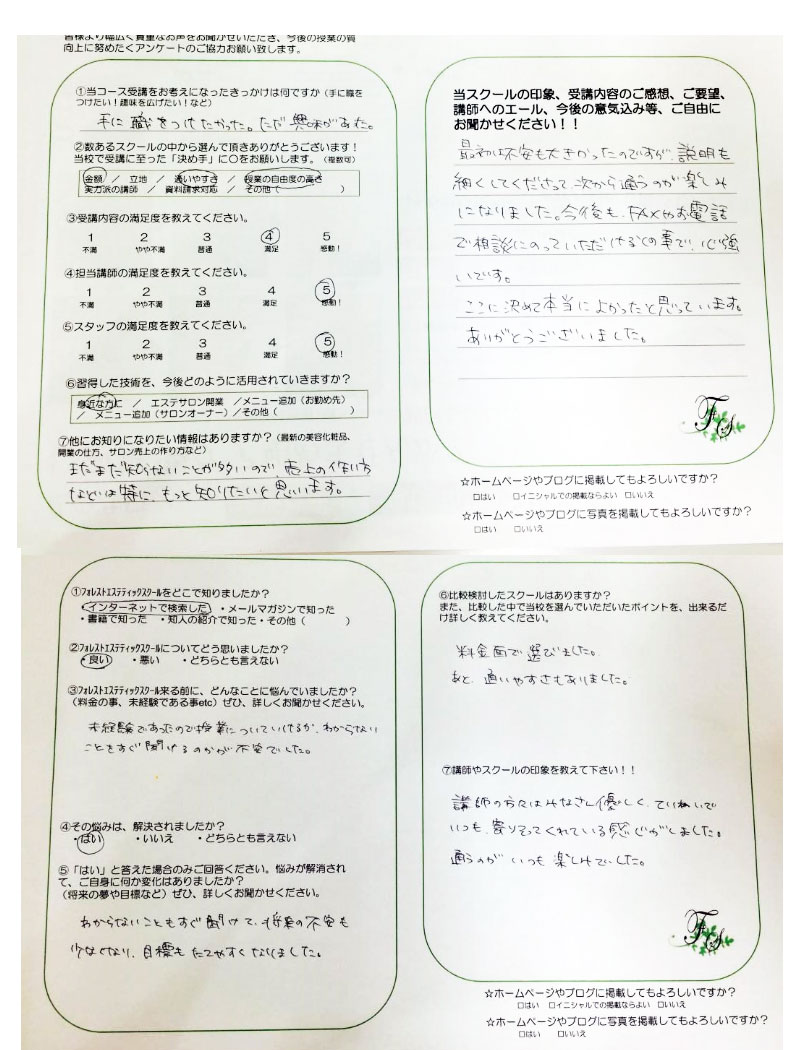 皆様より幅広く貴重なお声をお聞かせいただき、今後の授業の質
向上に努めたくアンケートのご協力お願い致します。
①当コース受講をお考えになったきっかけは何ですか(手に職を
つけたい!趣味を広げたい!など)
手に職をつけたかった。ただ興味があった。
②数あるスクールの中から選んで頂きありがとうございます!
当校で受講に至った「決め手」に○をお願いします。(複数可)
金額 / 立地 / 通いやすさ / 授業の自由度の高さ
実力派の講師 / 資料請求対応 / その他( )
③受講内容の満足度を教えてください。
1 2 3 4 5
不満 やや不満 普通 満足 感動!
④担当講師の満足度を教えてください。
1 2 3 4 5
不満 やや不満 普通 満足 感動!
⑤スタッフの満足度を教えてください。
1 2 3 4 5
不満 やや不満 普通 満足 感動!
⑥習得した技術を、今後どのように活用されていきますか?
身近な方に / エステサロン開業 /メニュー追加(お勤め先)
/ メニュー追加(サロンオーナー)/その他( )
⑦他にお知りになりたい情報はありますか?(最新の美容化粧品、
開業の仕方、サロン売上の作り方など)
まだまだ知らないことが多いので、売上の作り方
などは特に、もっと知りたいと思います。
当スクールの印象、受講内容のご感想、ご要望、
講師へのエール、今後の意気込み等、ご自由に
お聞かせください!!
最初は不安も大きかったのですが、説明も
細くしてくださって、次から通うのが楽しみ
になりました。今後も、FAXやお電話
で相談にのっていただけるとの事で、心強
いです。
ここに決めて本当によかったと思っています。
ありがとうございました。
FS
☆ホームページやブログに掲載してもよろしいですか?
□はい □イニシャルでの掲載ならよい □いいえ
☆ホームページやブログに写真を掲載してもよろしいですか?
□はい □いいえ
①フォレストエステティックスクールをどこで知りましたか?
・インターネットで検索した ・メールマガジンで知った
・書籍で知った ・知人の紹介で知った・その他( )
②フォレストエステティックスクールについてどう思いましたか?
・良い ・悪い ・どちらとも言えない
③フォレストエステティックスクール来る前に、どんなことに悩んでいましたか?
(料金の事、未経験である事etc)ぜひ、詳しくお聞かせください。
未経験であったので授業についていけるか、わからない
ことをすぐ聞けるのかが不安でした。
④その悩みは、解決されましたか?
・はい ・いいえ ・どちらとも言えない
⑤「はい」と答えた場合のみご回答ください。悩みが解消され
て、ご自身に何か変化はありましたか?
(将来の夢や目標など)ぜひ、詳しくお聞かせください。
わからないこともすぐ聞けて、将来の不安も
少なくなり、目標もたてやすくなりました。
⑥比較検討したスクールはありますか?
また、比較した中で当校を選んでいただいたポイントを、出来るだ
け詳しく教えてください。
料金面で選びました。
あと、通いやすさもありました。
⑦講師やスクールの印象を教えて下さい!!
講師の方々はみなさん優しく、ていねいで
いつも、寄りそってくれている感じがしました。
通うのがいつも楽しみでした。
FS
☆ホームページやブログに掲載してもよろしいですか?
□はい □イニシャルでの掲載ならよい □いいえ
☆ホームページやブログに写真を掲載してもよろしいですか?
□はい □いいえ